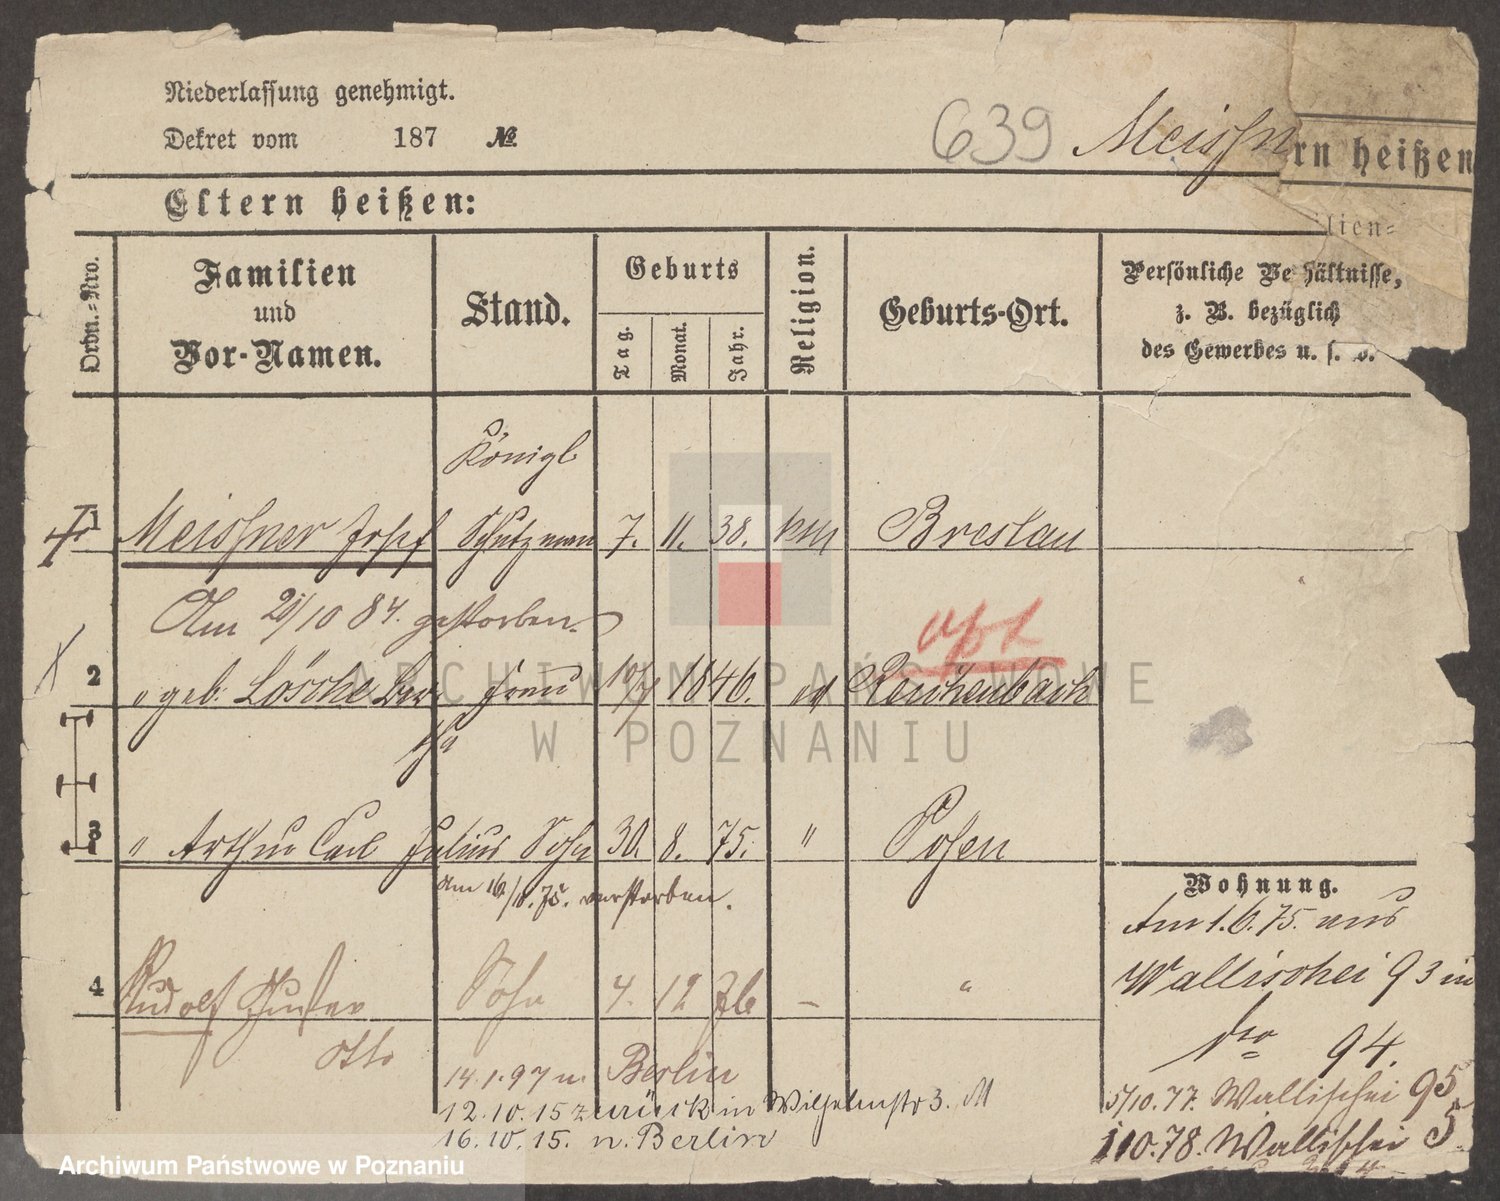 Niederlassung genehmigt.
Dekret vom 187 №
639 Meissn
rn heißen
Eltern heißen:
ilien=
Ordn.=Nro.
Familien
und
Vor-Namen.
Stand.
Geburts
Tag.
Monat.
Jahr.
Religion.
Geburts-Ort.
Persönliche Ve hältnisse,
z. B. bezüglich
des Gewerbes u. s. w.
Königl
1 Meissner Josef Schutzmann 7. 11. 38. kth Breslau
Am 21/10 84. gestorben.
2 " geb. Lösche Ber Frau 10/7 1846. ev Reichenbach
tha
3 " Arthur Carl Julius Sohn 30. 8. 75. " Posen
Am 16/ 75. verstorben.
Wohnung.
Am 1.6.75. aus
Wallischei 93 in
dto 94.
4 Rudolf Gustav Sohn 4. 12 76 – "
Otto
14.1.97 n. Berlin
12.10.15 zurück in Wilhelmstr 3.
16.10.15. n. Berlin
5/10.77. Wallischei 95
1 10.78. Wallischei 5
ARCHIWUM PAŃSTWOWE
W POZNANIU
Archiwum Państwowe w Poznaniu